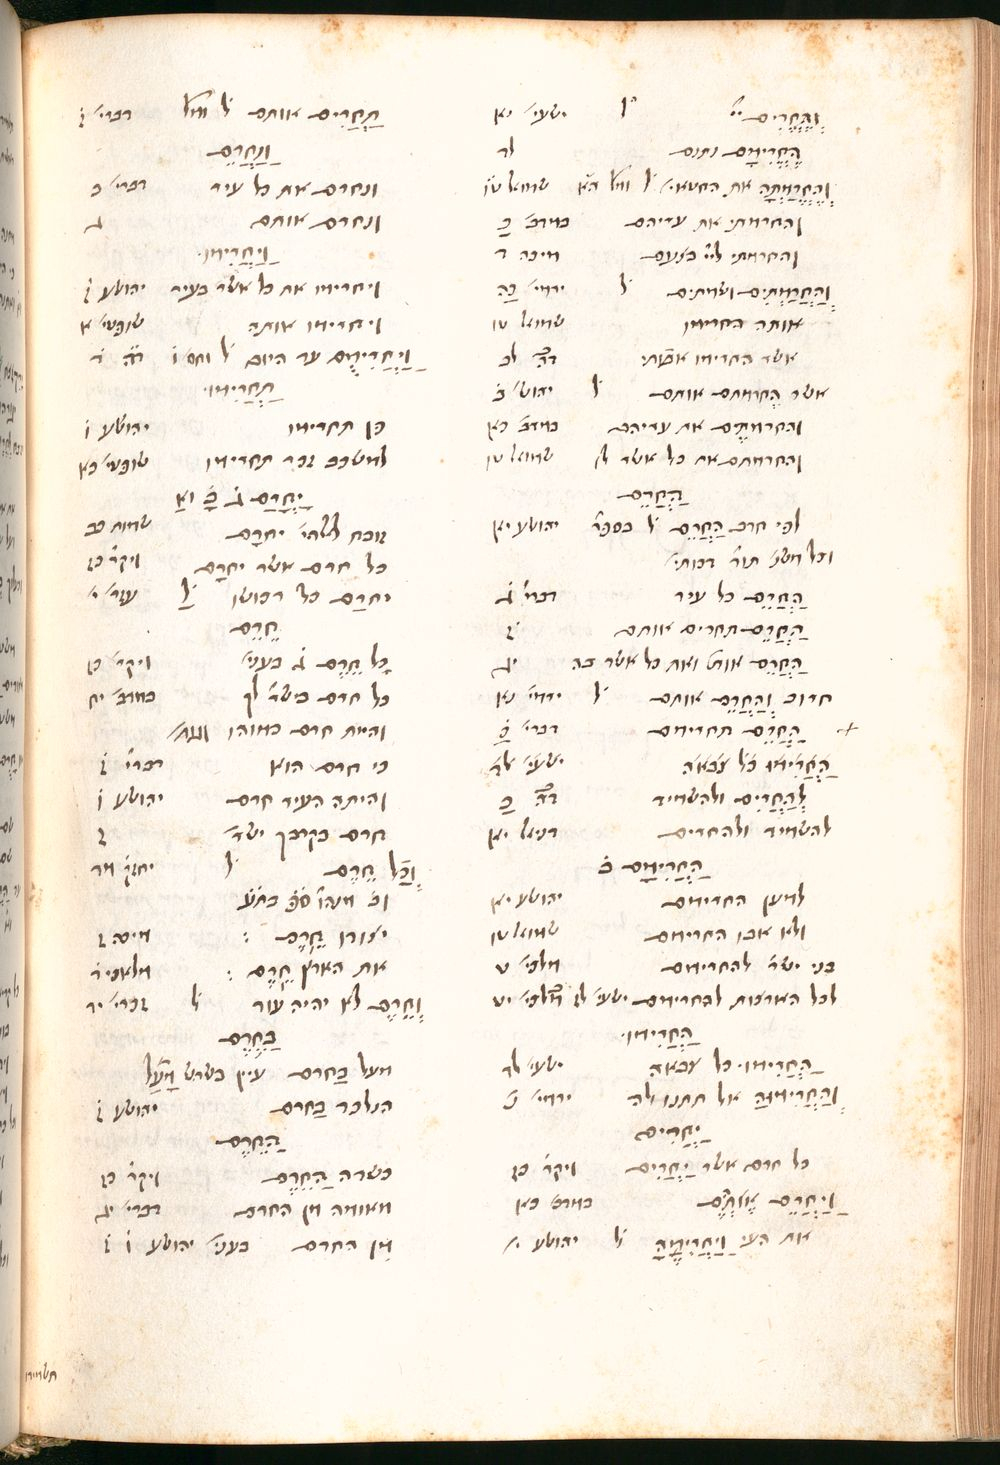 וְהֶחֱרִים יי׳ ל ישעי׳ יא
הֶחֱרִימָם נתנם לד
וְהַחֲרַמְתָּה את החטאי׳ ל שמואל טו
והחרמתי את עריהם במדב׳ כא
והחרמתי ליי׳ בצעם מיכה ד
וְהַחֲרַמְתִּים ושמתים ל ירמי׳ כה
אותה החרימו שמואל טו
אשר החרימו אבותי לב
אשר הֶחֱרמתם אותם ל יהוש׳ ב
והחרמתים את עריהם במדב׳ כא
והחרמתם את כל אשר לו שמואל טו
הַחֲרֵם
לפי חרב הַחֲרֵם ל בספר׳ יהושע יא
וכל משנ׳ תור׳ דכות׳
הַחֲרֵם כל עיר דברי׳ ג
הַחֲרֵם תחרים אותם ז
הַחֲרֵם אותה ואת כל אשר בה יג
חרוב וְהַחֲרֵם אותם ל ירמי׳ נא
הַחֲרֵם תחרימם דברי׳ כ
הַחֲרִימוּ כל צבאה ישעי׳ לד
לְהַחֲרִים ולהשמיד כ
להשמיד ולהחרים דניאל יא
הַחֲרִימָם ב
למען החרימם יהושע יא
ולא אבו החרימם שמואל טו
בני ישר׳ להחרימם מלכי׳ ט
לכל הארצות להחרימם ישעי׳ לז מלכי׳ יט
הַחֲרִימוּ
הַחֲרִימוּ כל צבאה ישעי׳ לד
וְהַחֲרִימוּהָ אל תהי לה ירמי׳ נ
יַחֲרִים
כל חרם אשר יַחֲרִים ויקר׳ כז
וַיַּחֲרֵם אֶתְהֶם במדב׳ כא
את העי וַיַּחֲרִימָהּ ל יהושע י
תַּחֲרִים אותם ל דברי׳ ז
וַנַּחֲרֵם
ונחרם את כל עיר דברי׳ ב
ונחרם אותם ג
וַיַּחֲרִימוּ
ויחרימו את כל אשר בעיר יהושע ו
ויחרימו אותה שופטי׳ א
וַיַּחֲרִימֻם עד היום ל
תַּחֲרִימוּ
כן תחרימו יהושע ו
למשכב זכר תחרימו שופטי׳ כא
יָחֳרַם
זובח לאלהי׳ יחרם שמות כב
כל חרם אשר יחרם ויקר׳ כז
יחרם כל רכושו ל עזר׳ י
חֵרֶם
כל חֵרֶם ג בעני׳ ויקר׳ כז
כל חרם בישר׳ לך במדב׳ יח
והיית חרם כמוהו
כי חרם הוא דברי׳ ז
והיתה העיר חרם יהושע ו
חרם בקרבך ישר׳ ז
וְכָל חֵרֶם ל יחזק׳ מד
יצודו חֵרֶם : מיכה ז
את הארץ חֵרֶם : מלאכי׳ ג
וְחֵרֶם לא יהיה עוד ל זכרי׳ יד
בַּחֵרֶם
מעל בַּחרם
הנלכד בַּחרם יהושע ז
הַחֵרֶם
כשדה הַחֵרֶם ויקר׳ כז
מאומה מן החרם דברי׳ יג
מן החרם בעני׳ יהושע ו ז